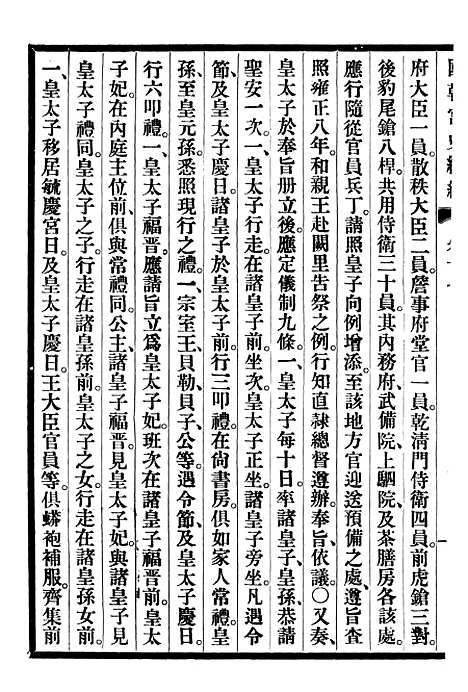 國朝宮史續編
府大臣一員。散秩大臣二員。詹事府堂官一員。乾淸門侍衛四員。前虎鎗三對。
後豹尾鎗八桿。共用侍衛三十員。其內務府、武備院、上駟院、及茶膳房各該處。
應行隨從官員兵丁。請照皇子向例增添。至該地方官迎送預備之處。遵旨查
照雍正八年。和親王赴闕里告祭之例。行知直隸總督遵辦。奉旨。依議。○又奏、
皇太子於奉旨册立後。應定儀制九條。一、皇太子每十日。率諸皇子、皇孫。恭請
聖安一次。一、皇太子行走在諸皇子前。坐次。皇太子正坐。諸皇子旁坐。凡遇令
節、及皇太子慶日。諸皇子於皇太子前。行三叩禮。在尙書房。俱如家人常禮。皇
孫、至皇元孫。悉照現行之禮。一、宗室王、貝勒、貝子、公等。遇令節、及皇太子慶日。
行六叩禮。一、皇太子福晋。應請旨立爲皇太子妃。班次在諸皇子福晋前。皇太
子妃。在內庭主位前。俱與常禮同。公主、諸皇子福晋、見皇太子妃。與諸皇子見
皇太子禮同。皇太子之子。行走在諸皇孫前。皇太子之女。行走在諸皇孫女前。
一、皇太子移居毓慶宮日。及皇太子慶日。王大臣官員等。俱蟒袍補服。齊集前